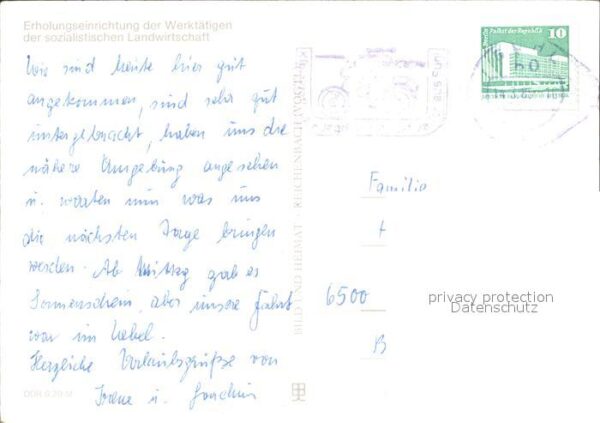 Erholungseinrichtung der Werktätigen
der sozialistischen Landwirtschaft
Wir sind heute hier gut
angekommen, sind sehr gut
untergebracht, haben uns die
nähere Umgebung angesehen
u. warten nun was uns
die nächsten Tage bringen
werden. Ab Mittag gab es
Sonnenschein, aber unsere Fahrt
war im Nebel.
Herzliche Urlaubsgrüße von
Irene u. Joachim
DDR
BILD UND HEIMAT · REICHENBACH (VOGTL)
Palast der Republik
10
Familie
6500
B
privacy protection
Datenschutz